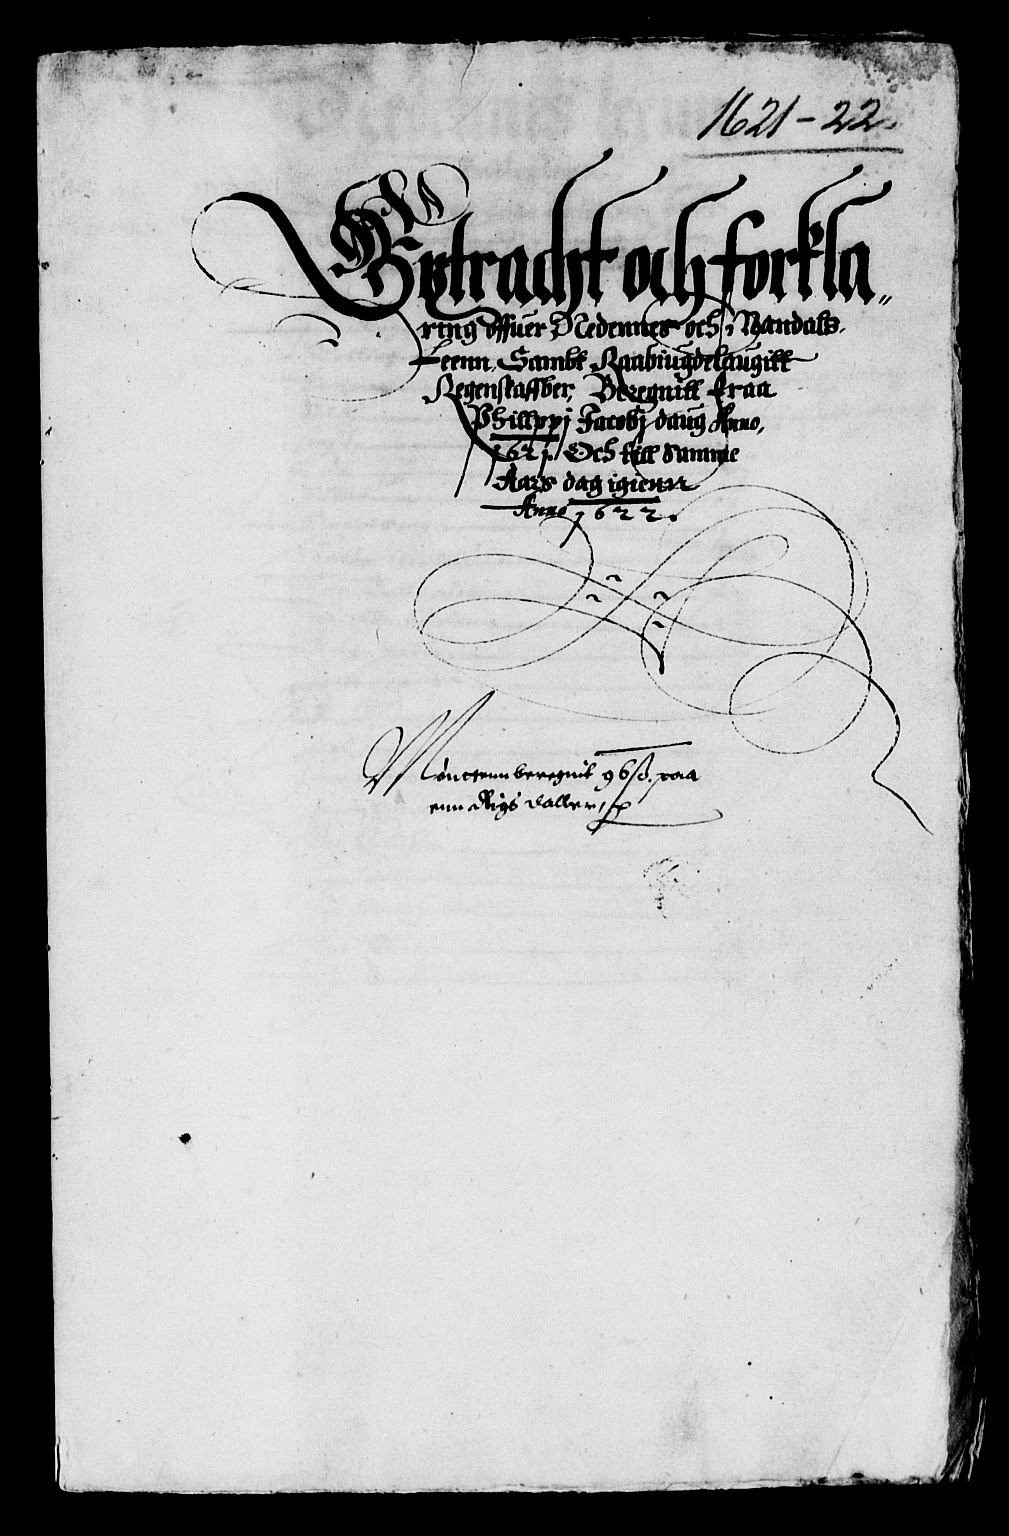 1621-22.
Wdtracht och forkla„
ring offuer Nedennes och Mandals
Leenn, Sambt Raabiugdelaugitt
Regenskaffber, Beregnitt fraa
Philippj Jacobj daug Anno,
1621. Och till samme
Aars dag igienn
Anno 1622.
Mønttenn beregnit 96 ß. paa
enn Rigs daller,